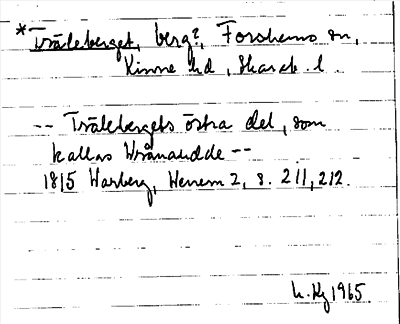 *Träleberget, berg?, Forshems sn,
Kinne hd, Skarab. l.
-- Trälebergets östra del, som
kallas Wrånaudde --
1815 Warberg, Herrem 2, s. 211, 212.
1965.